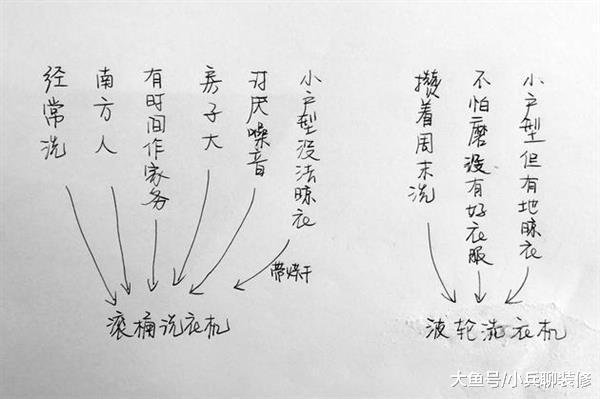 经常洗
南方人
有时间作家务
房子大
讨厌噪音
小户型没法晾衣
带烘干
滚桶洗衣机
攒着周末洗
不怕磨没有好衣服
小户型但有地晾衣
波轮洗衣机
大鱼号/小兵聊装修